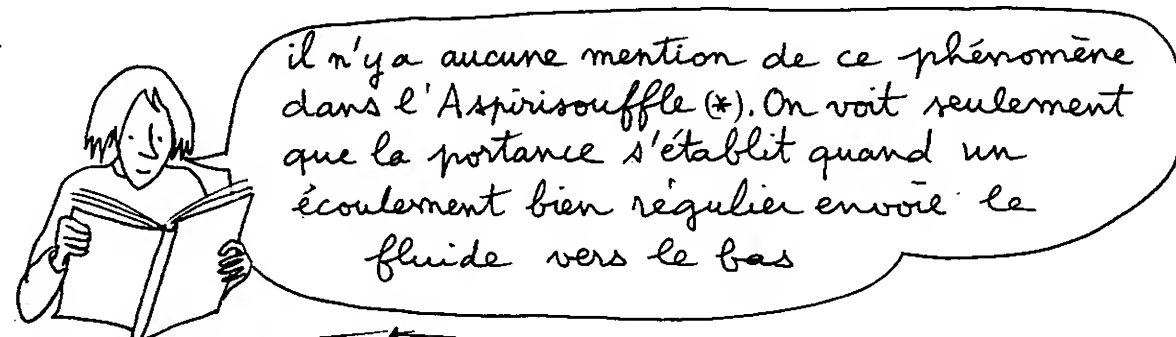 il n'y a aucune mention de ce phénomène
dans l'Aspirisouffle (*). On voit seulement
que la portance s'établit quand un
écoulement bien régulier envoie le
fluide vers le bas